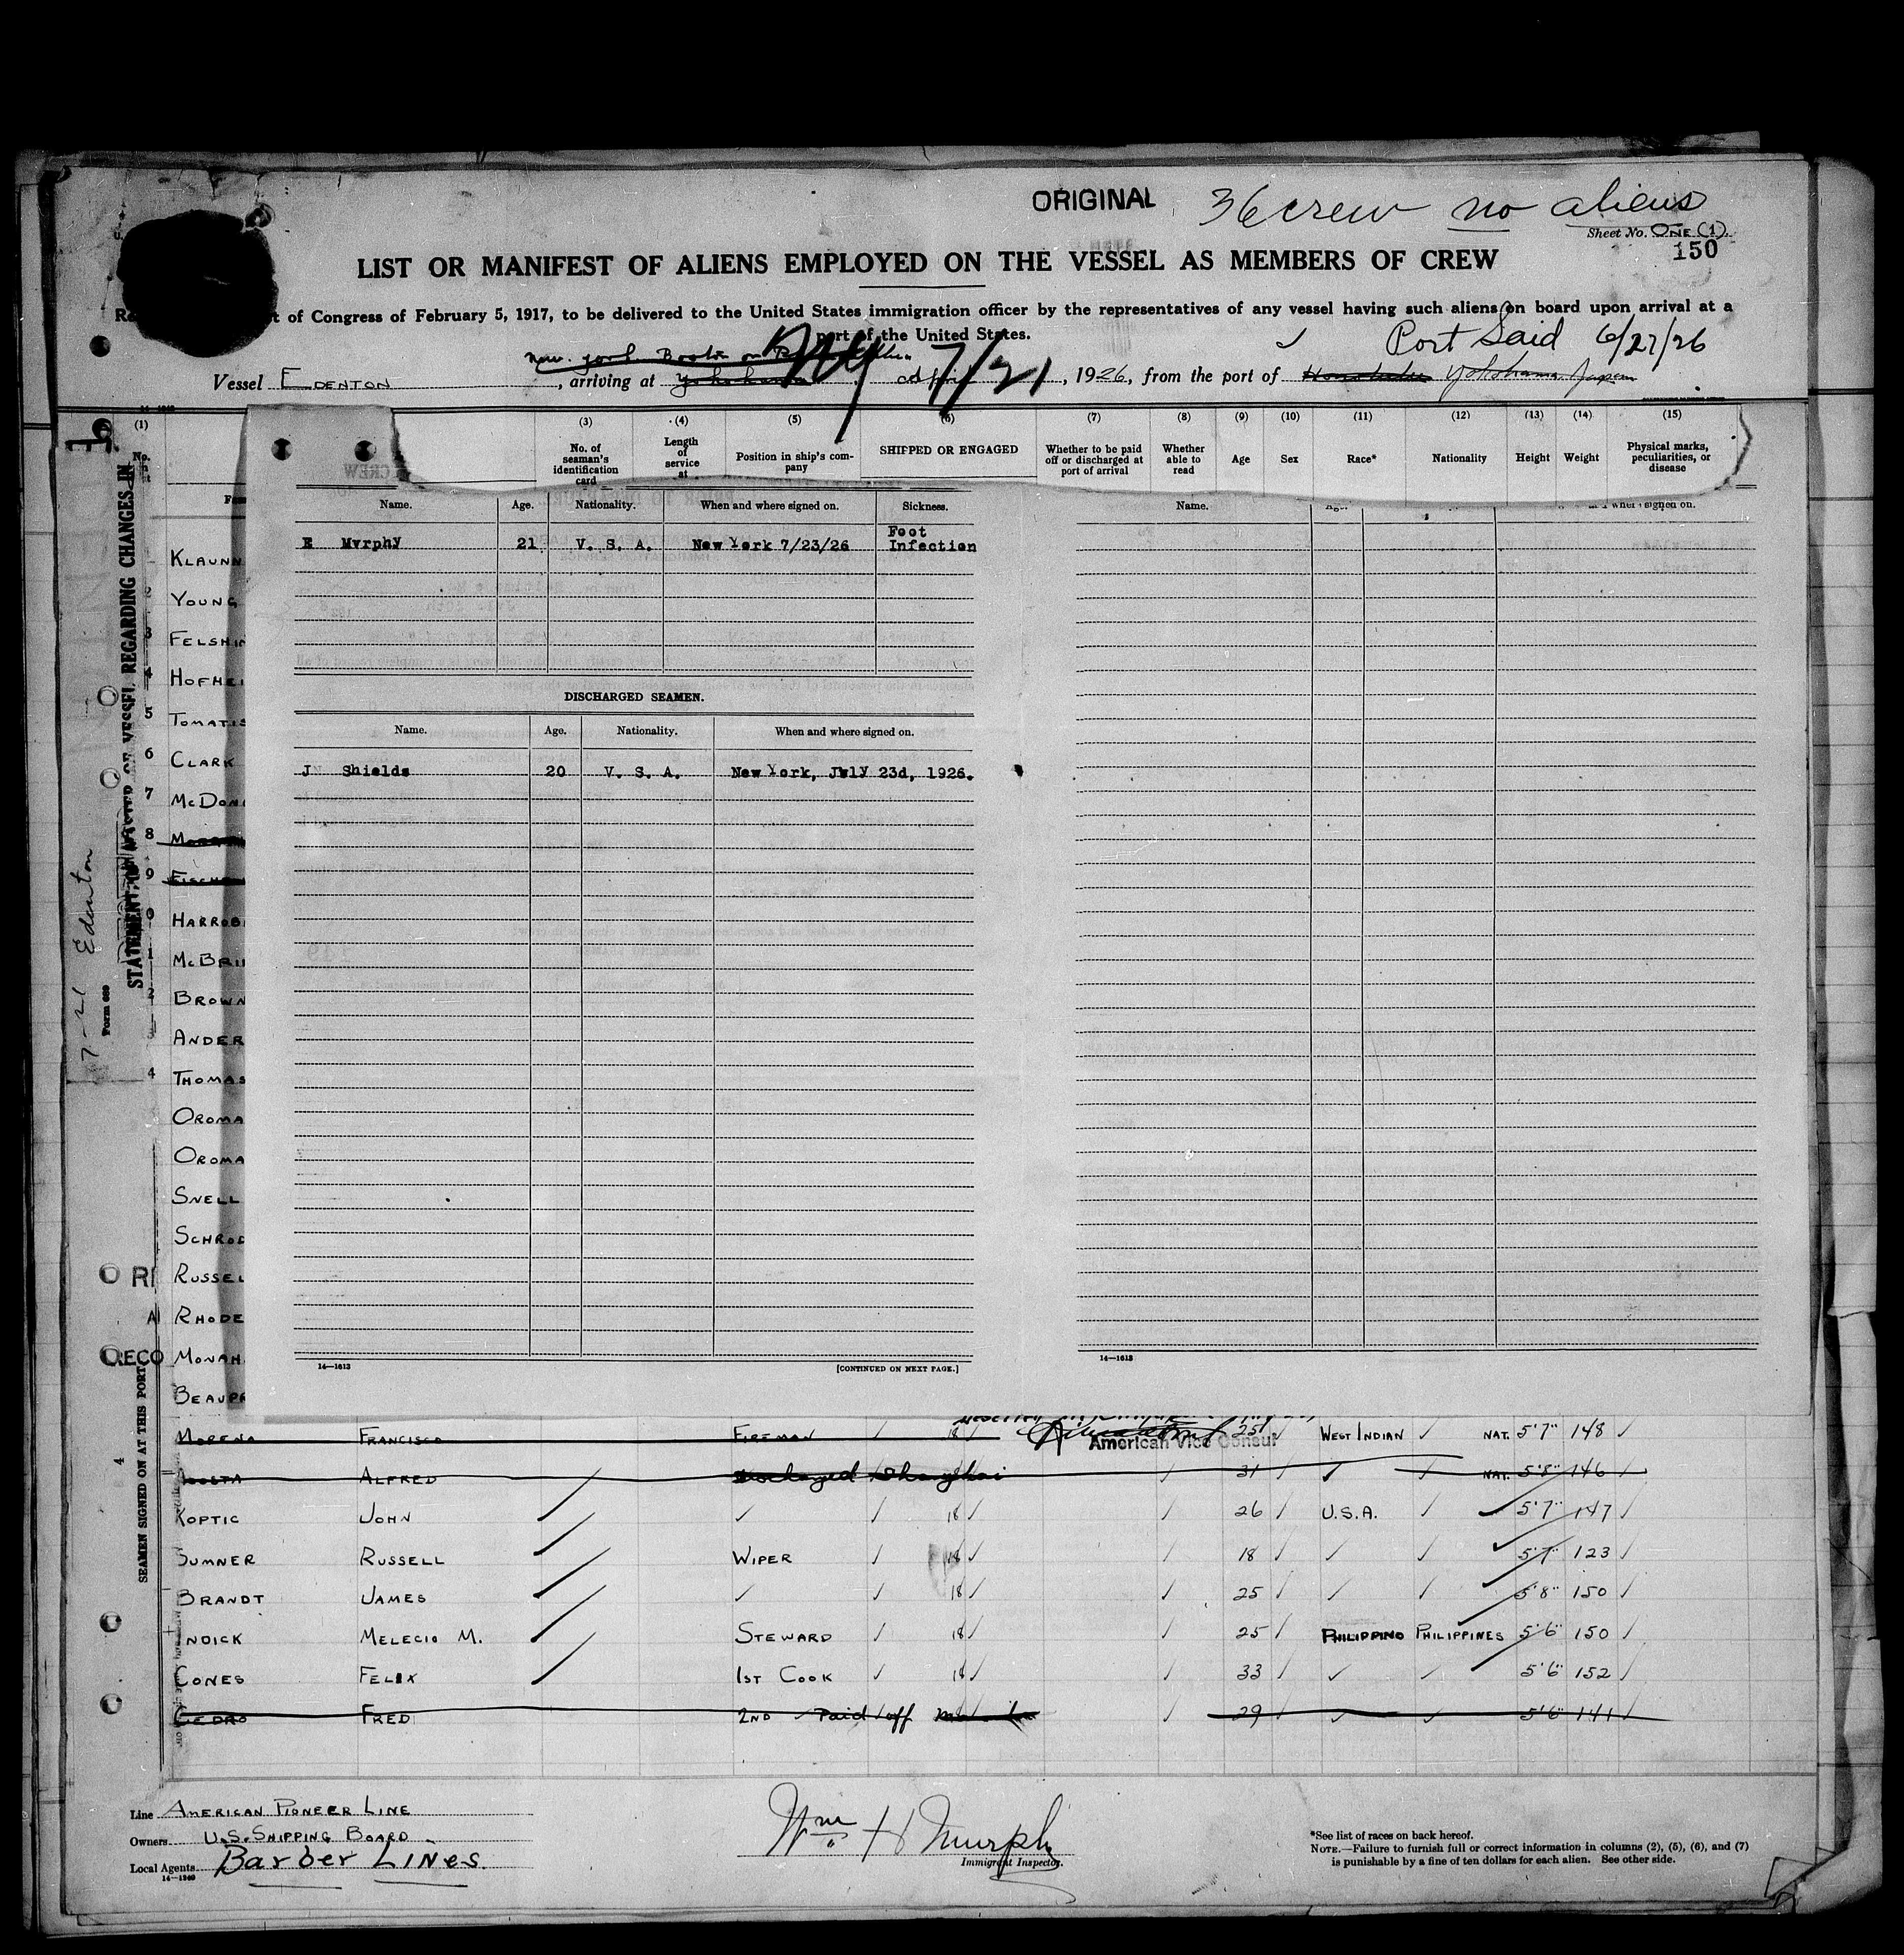 ORIGINAL 36 crew no aliens
Sheet No. ONE (1).
150
LIST OR MANIFEST OF ALIENS EMPLOYED ON THE VESSEL AS MEMBERS OF CREW
of Congress of February 5, 1917, to be delivered to the United States immigration officer by the representatives of any vessel having such aliens on board upon arrival at a
port of the United States.
Port Said 6/27/26
New York
Vessel EDENTON, arriving at Yokohama NY 7/21, 1926, from the port of Honolulu Yokohama Japan
(1) (3) (4) (5) (6) (7) (8) (9) (10) (11) (12) (13) (14) (15)
No. of seaman's identification card
Length of service at
Position in ship's company
SHIPPED OR ENGAGED
Whether to be paid off or discharged at port of arrival
Whether able to read
Age
Sex
Race*
Nationality
Height
Weight
Physical marks, peculiarities, or disease
Name. Age. Nationality. When and where signed on. Sickness.
E Mvrphy 21 V. S. A. New York 7/23/26 Foot Infection
DISCHARGED SEAMEN.
Name. Age. Nationality. When and where signed on.
J Shields 20 V. S. A. New York, Jvly 23d, 1926.
14—1613 [CONTINUED ON NEXT PAGE.]
Name. signed on.
14—1613
STATEMENT OF MASTER OF VESSEL REGARDING CHANGES IN
7-21 Edenton
Form 689
SEAMEN SIGNED ON AT THIS PORT
KLAUNN
2 YOUNG
3 FELSHIN
4 HOFHEI
5 TOMATIS
6 CLARK
7 McDON
8
9 FISCH
0 HARROB
1 McBRI
2 BROWN
3 ANDER
4 THOMAS
OROMA
OROMA
SNELL
SCHROD
RUSSEL
RHODE
MONAH
BEAUPR
MORENO FRANCISCO FIREMAN 18 American Vice Consul 25 WEST INDIAN NAT. 5'7" 148
ACOSTA ALFRED Discharged Shanghai 31 NAT. 5'8" 146
KOPTIC JOHN 18 26 U.S.A. 5'7" 147
SUMNER RUSSELL WIPER 18 18 5'7" 123
BRANDT JAMES 18 25 5'8" 150
INDICK MELECIO M. STEWARD 18 25 PHILIPPINO PHILIPPINES 5'6" 150
CONES FELIX 1ST COOK 18 33 5'6" 152
CEDRO FRED 2ND Paid off 29 5'6" 141
Line AMERICAN PIONEER LINE
Owners U.S. SHIPPING BOARD
Local Agents Barber LINES.
14—1240
Wm H Murphy
Immigrant Inspector.
*See list of races on back hereof.
NOTE.—Failure to furnish full or correct information in columns (2), (5), (6), and (7)
is punishable by a fine of ten dollars for each alien. See other side.